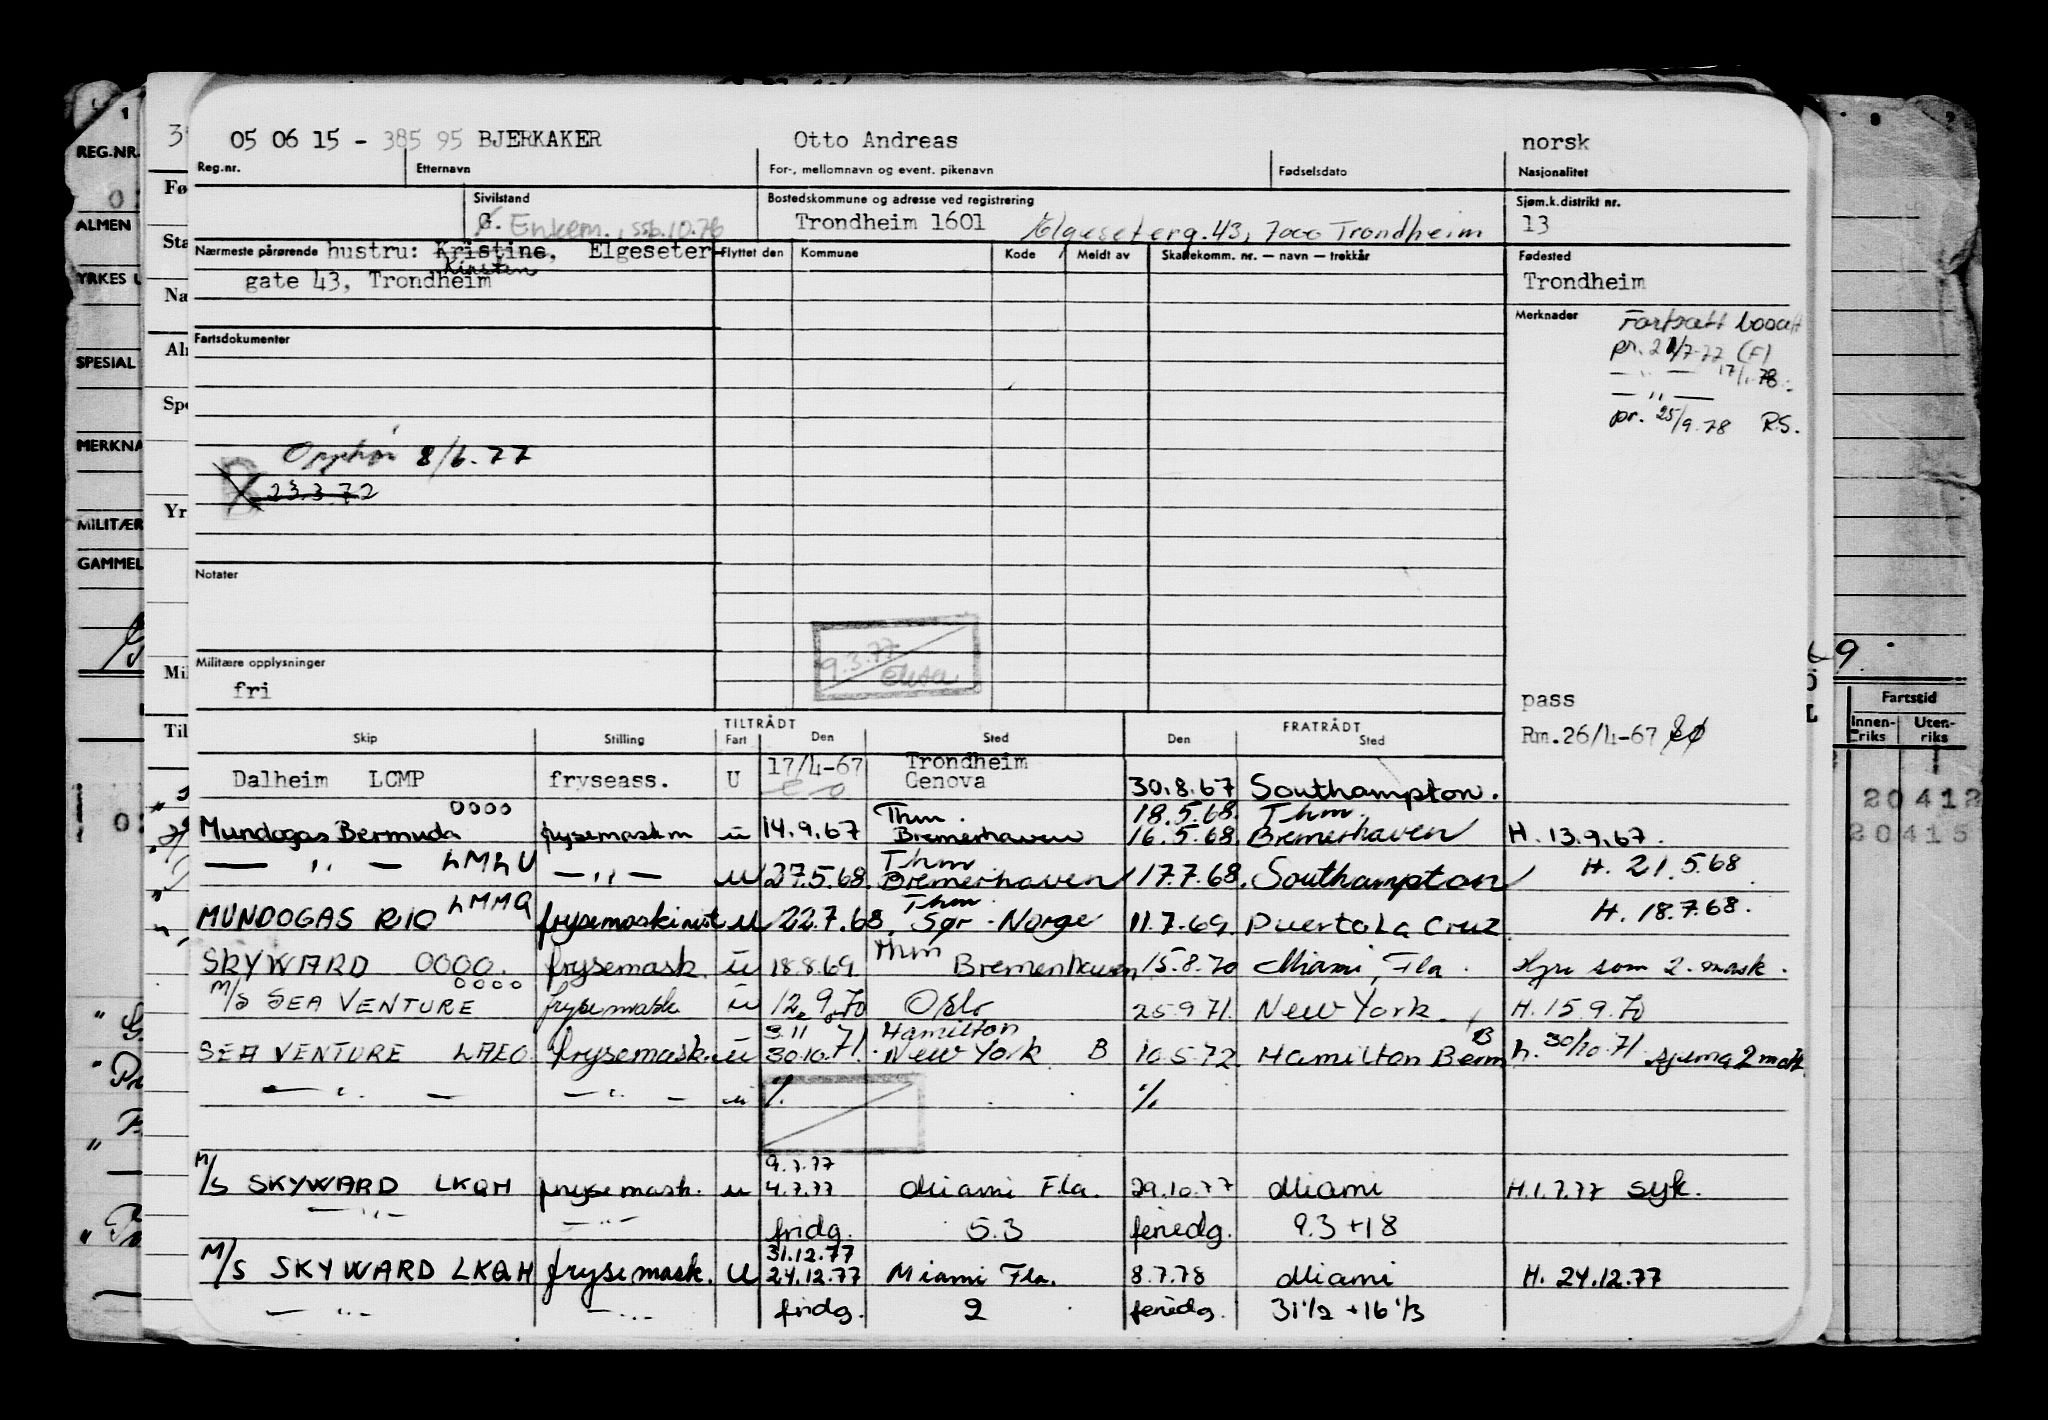 05 06 15 - 385 95 BJERKAKER Otto Andreas norsk
Reg.nr. Etternavn For-, mellomnavn og event. pikenavn Fødselsdato Nasjonalitet
Sivilstand Bostedskommune og adresse ved registrering Sjøm.k.distrikt nr.
G. Enkem., ssb.10.76 Trondheim 1601 Elgeseterg. 43, 7000 Trondheim 13
Nærmeste pårørende hustru: Kristine, Elgeseter- Flyttet den Kommune Kode Meldt av Skattekomm. nr. — navn — trekkår Fødested
Kirsten
gate 43, Trondheim Trondheim
Merknader Fortsatt
pr. 21/7-77 (F)
— „ — 17/1.78
— „ —
pr. 25/9.78 RS.
Fartsdokumenter
Opphør 8/6.77
23.3.72
Notater
9.3.77
Militære opplysninger
fri
pass
TILTRÅDT FRATRÅDT
Skip Stilling Fart Den Sted Den Sted Rm.26/4-67
17/4-67 Trondheim
Dalheim LCMP fryseass. U Genova 30.8.67 Southampton.
0000 Thm. 18.5.68. Thm.
Mundogas Bermuda frysemaskin u 14.9.67 Bremerhaven 16.5.68. Bremerhaven H. 13.9.67.
Thm
— „ — LMLU — „ — u 27.5.68. Bremerhaven 17.7.68. Southampton H. 21.5.68
LMMQ Thm.
MUNDOGAS RIO frysemaskinist u 22.7.68. Sør-Norge 11.7.69. Puerto La Cruz H. 18.7.68.
Thm
SKYWARD 0000. frysemask. u 18.8.69. Bremerhaven 15.8.70 Miami, Fla. Hyre som 2. mask.
0000
M/S SEA VENTURE frysemask u 12.9.70 Oslo 25.9.71. New York. H. 15.9.70
3.11 Hamilton B
SEA VENTURE LAEO frysemask. u 30.10.71. New York B 10.5.72. Hamilton Berm h. 30/10.71.
— „ — — „ — u % %
9.7.77
M/S SKYWARD LKQH frysemask. u 4.7.77 Miami Fla. 29.10.77 Miami H.1.7.77 syk.
— „ — — „ — fridg. 5.3 feriedg. 9.3 + 18
31.12.77
M/S SKYWARD LKQH frysemask. U 24.12.77 Miami Fla. 8.7.78 Miami H. 24.12.77
— „ — — „ — fridg. 2 feriedg. 31 1/2 + 16 1/3
REG.NR.
ALMEN
YRKES
SPESIAL
MERKNA
MILITÆR
GAMMEL
Fø
Sta
Na
Al
Spe
Yr
Mil
Til
9.
Fartstid
Innen-riks Uten-riks
20412
20415